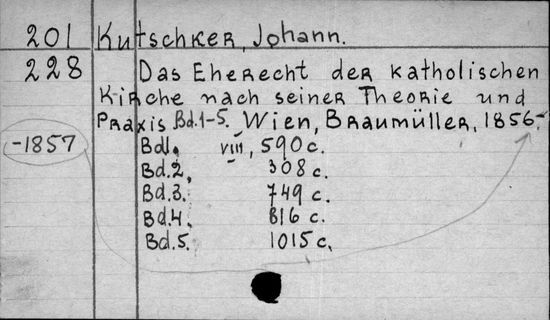 201 Kutschker, Johann.
228 Das Eherecht der katholischen
Kirche nach seiner Theorie und
Praxis Bd.1-5. Wien, Braumüller, 1856-
-1857
Bd.1. VIII, 590 c.
Bd.2. 308 c.
Bd.3. 749 c.
Bd.4. 816 c.
Bd.5. 1015 c.